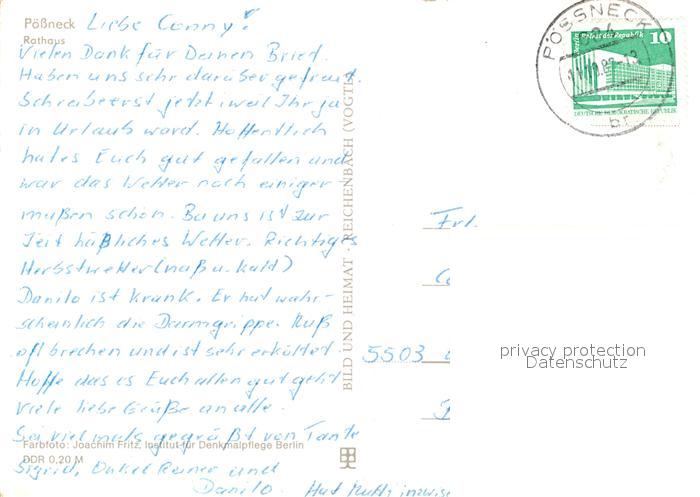 Pößneck
Rathaus
Liebe Conny!
Vielen Dank für Deinen Brief.
Haben uns sehr darüber gefreut.
Schreibe erst jetzt weil Ihr ja
in Urlaub ward. Hoffentlich
hat es Euch gut gefallen und
war das Wetter noch einiger
maßen schön. Bei uns ist zur
Zeit häßliches Wetter. Richtiges
Herbstwetter (naß u. kalt)
Danilo ist krank. Er hat wahr-
scheinlich die Darmgrippe. Muß
oft brechen und ist sehr erkältet.
Hoffe das es Euch allen gut geht
Viele liebe Grüße an alle.
Sei vielmals gegrüßt von Tante
Sigrid, Onkel Reiner und
Danilo. Hat Mutti inzwise
Farbfoto: Joachim Fritz, Institut für Denkmalpflege Berlin
DDR 0,20 M
BILD UND HEIMAT · REICHENBACH (VOGTL
PÖSSNECK
br
Berlin, Palast der Republik
10
DEUTSCHE DEMOKRATISCHE REPUBLIK
Frl.
5503
privacy protection
Datenschutz